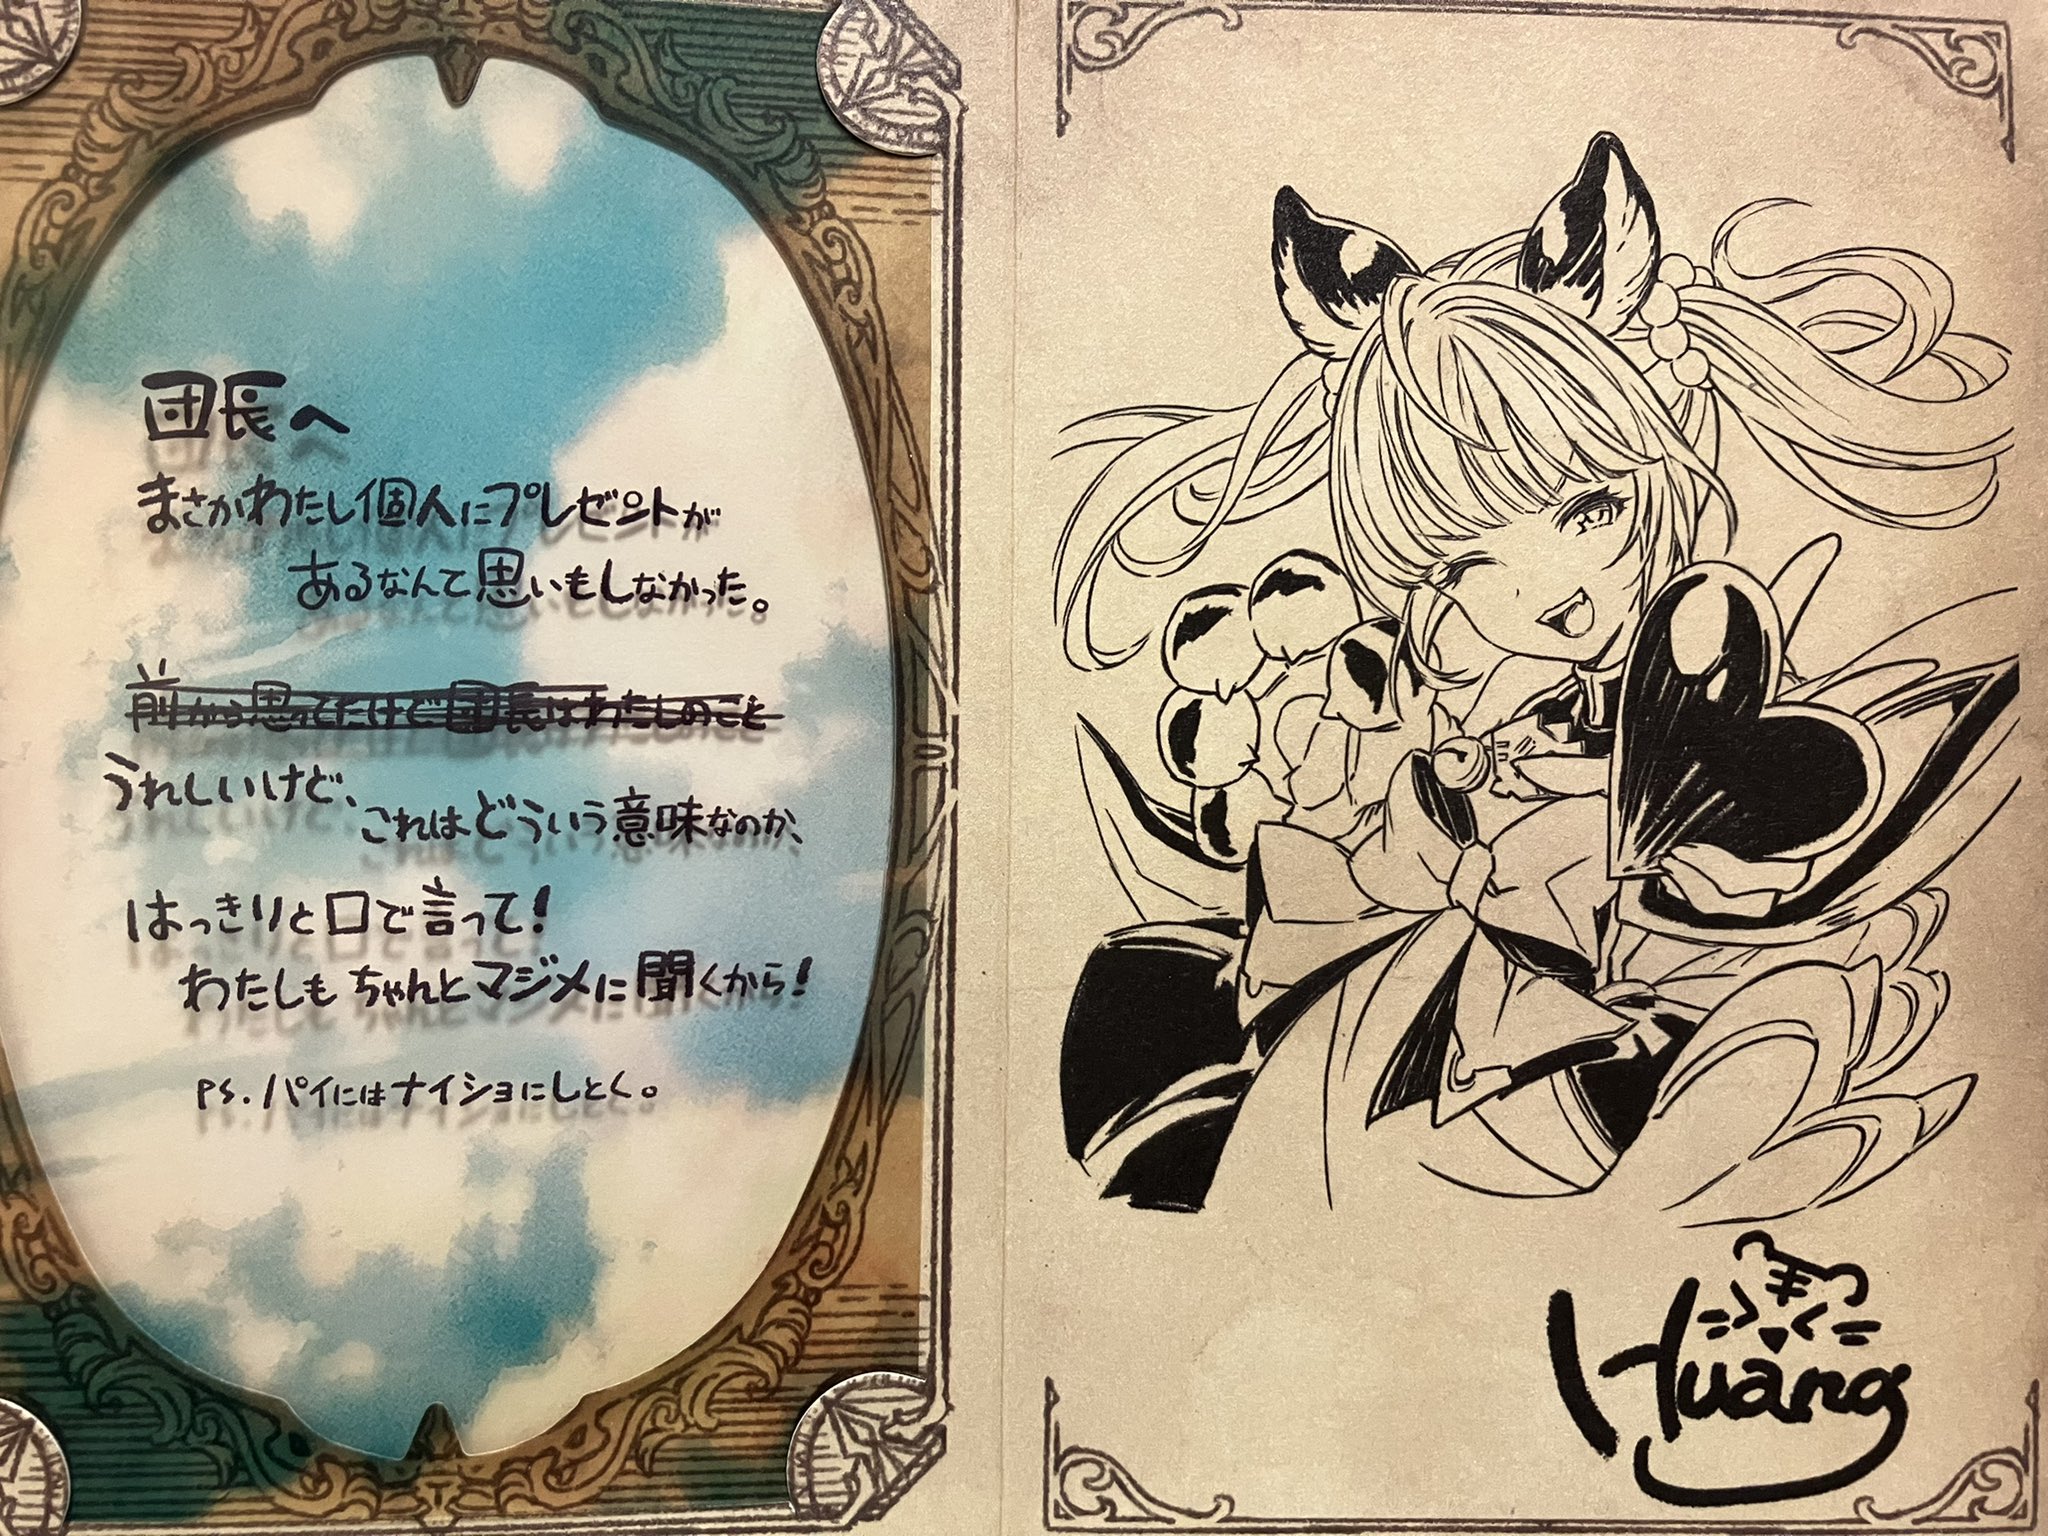 団長へ
まさかわたし個人にプレゼントが
あるなんて思いもしなかった。
前から思ってたけど団長はわたしのこと
うれしいけど、これはどういう意味なのか、
はっきりと口で言って!
わたしもちゃんとマジメに聞くから!
PS.パイにはナイショにしとく。
Huang